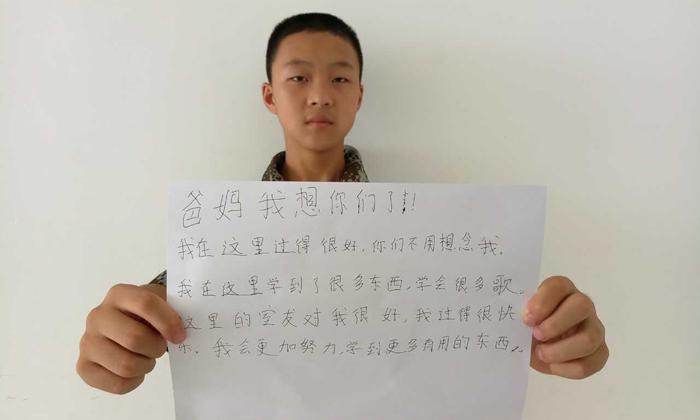 爸妈我想你们了!!!
我在这里过得很好,你们不用想念我.
我在这里学到了很多东西,学会很多歌..
这里的室友对我很好,我过得很快
乐.我会更加努力,学到更多有用的东西..